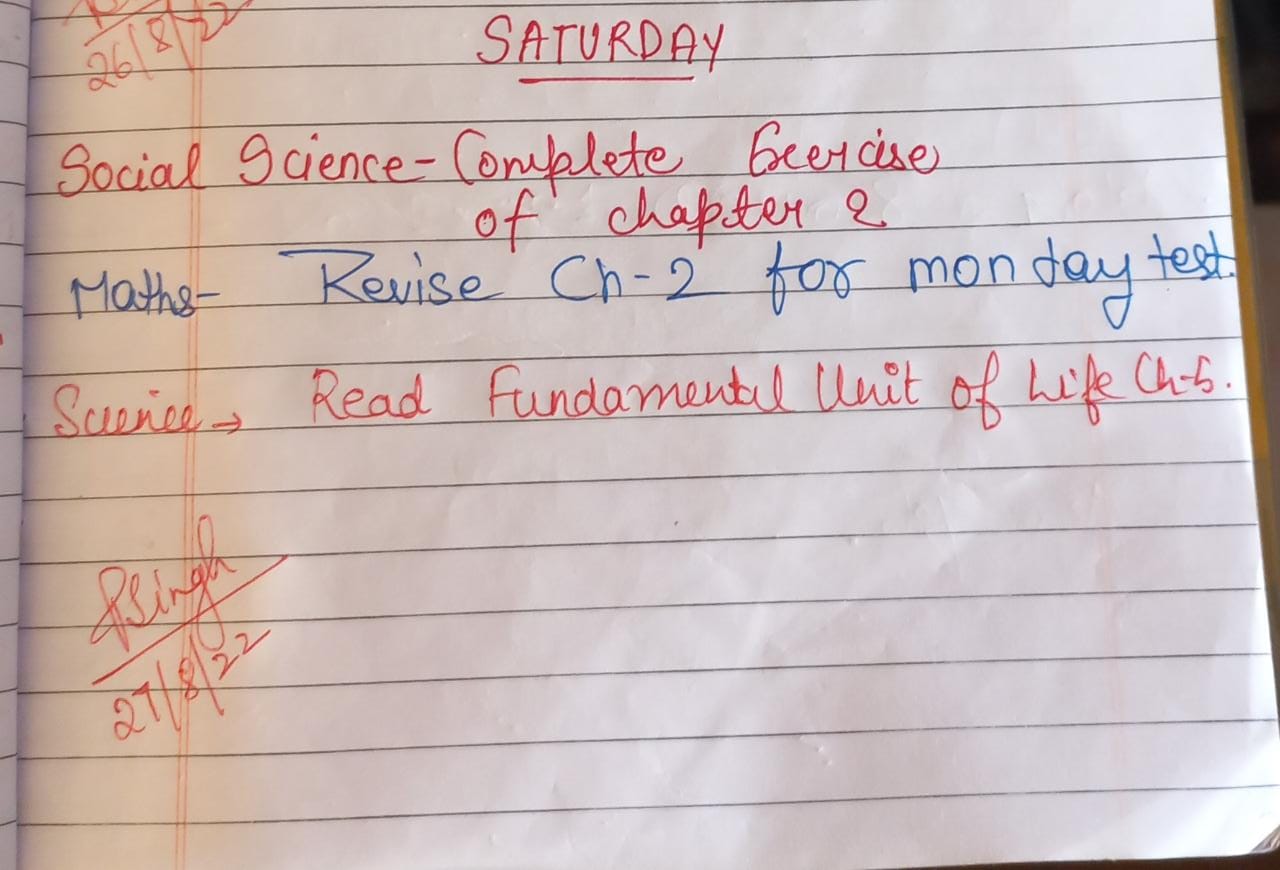 26/8/22
SATURDAY
Social Science - Complete Exercise
of chapter 2
Maths - Revise Ch-2 for monday test.
Science → Read Fundamental Unit of Life Ch-5.
PSingh
27/8/22